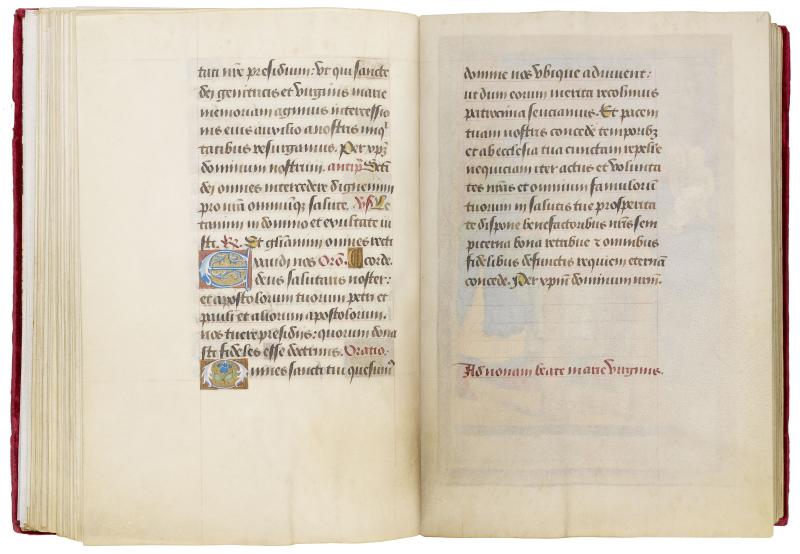 tuti nr̄e presidium: Vt qui sancte
dei genitricis et virginis marie
memoriam agimus intercessio
nis eius auxilio a nostris iniqͥ
tatibus resurgamus. Per xp̄ꝫ
dominum nostrum. antipͣ Sc̄ti
dei omnes intercedere dignemini
pro nr̄a omniūqꝫ salute. Vs̄. Le
tamini in domino et exultate iu
sti. R̄. Et gl̄iamini omnes recti
Exaudi nos Orō. corde.
deus salutaris noster:
et apostolorum tuorum petri et
pauli et aliorum apostolorum.
nos tuere presidijs: quorum dona
sti fideles esse doctrinis. Oratio.
Omnes sancti tui quesum̄ꝰ
domine nos vbique adiuuent:
ut dum eorum merita recolimus
patrocinia senciamus. Et pacem
tuam nostris concede temporibꝫ
et ab ecclesia tua cunctam repelle
nequiciam iter actus et volunta
tes nr̄as et omnium famulorū
tuorum in salutis tue prosperita
te dispone benefactoribus nr̄is sem
piterna bona retribue ⁊ omnibus
fidelibus defunctis requiem eternā
concede. Per xp̄m̄ dominum nr̄m̄.
Ad nonam beate marie virginis.